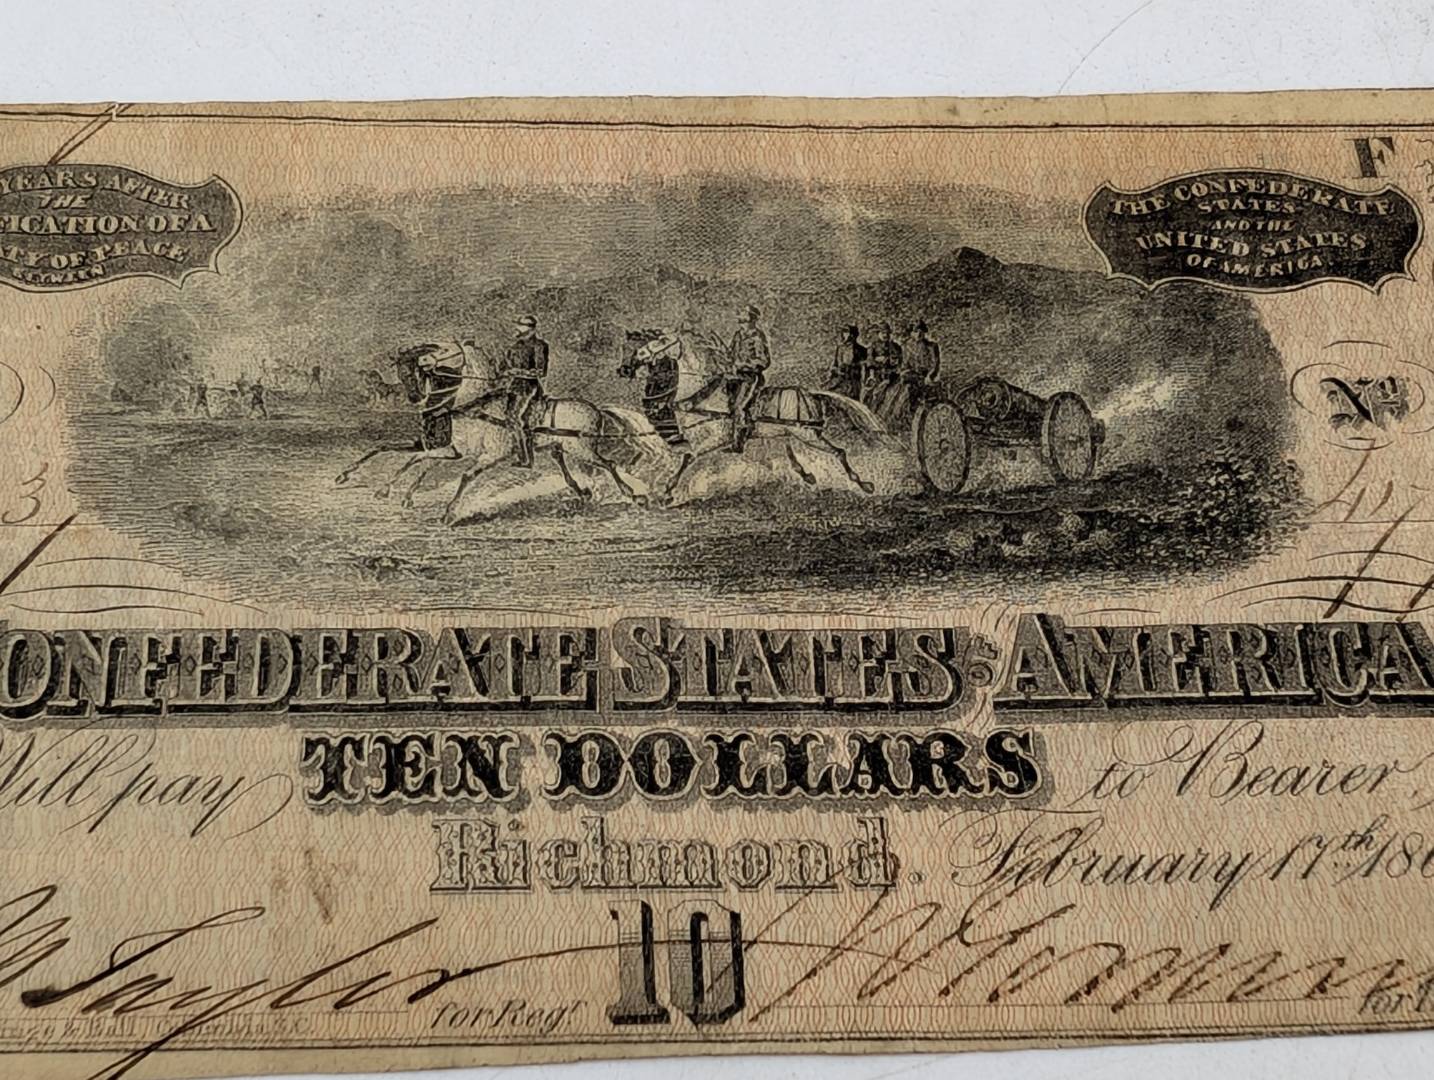 YEARS AFTER
THE
FICATION OF A
ATY OF PEACE
BETWEEN
F
THE CONFEDERATE
STATES
AND THE
UNITED STATES
OF AMERICA
No
3
ONFEDERATE STATES OF AMERICA
Will pay TEN DOLLARS to Bearer,
Richmond. February 17th 186
Taylor for Regr. 10 for
& Ball, Columbia, S.C.